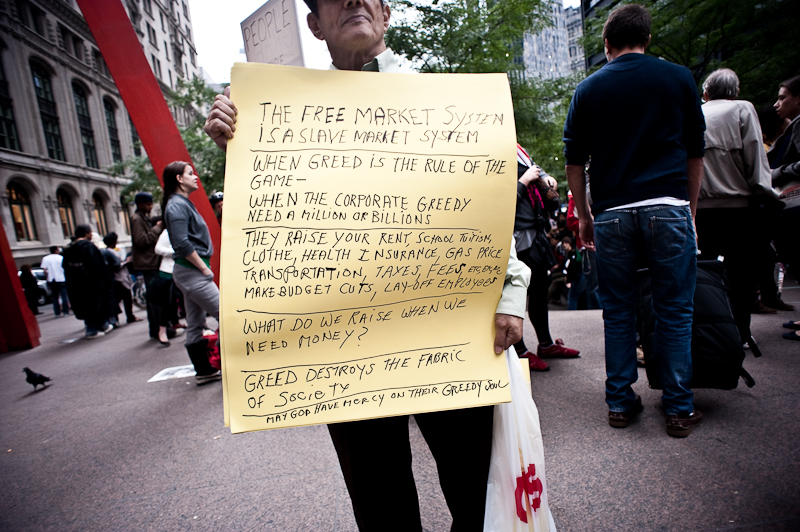 PEOPLE
THE FREE MARKET SYSTEM
IS A SLAVE MARKET SYSTEM
WHEN GREED IS THE RULE OF THE
GAME-
WHEN THE CORPORATE GREEDY
NEED A MILLION OR BILLIONS
THEY RAISE YOUR RENT, SCHOOL TUITISM,
CLOTHE, HEALTH INSURANCE, GAS PRICE
TRANSPORTATION, TAXES, FEES, ETC, ETC,
MAKE BUDGET CUTS, LAY-OFF EMPLOYEES
WHAT DO WE RAISE WHEN WE
NEED MONEY?
GREED DESTROYS THE FABRIC
OF SOCIETY
MAY GOD HAVE MERCY ON THEIR GREEDY SOUL